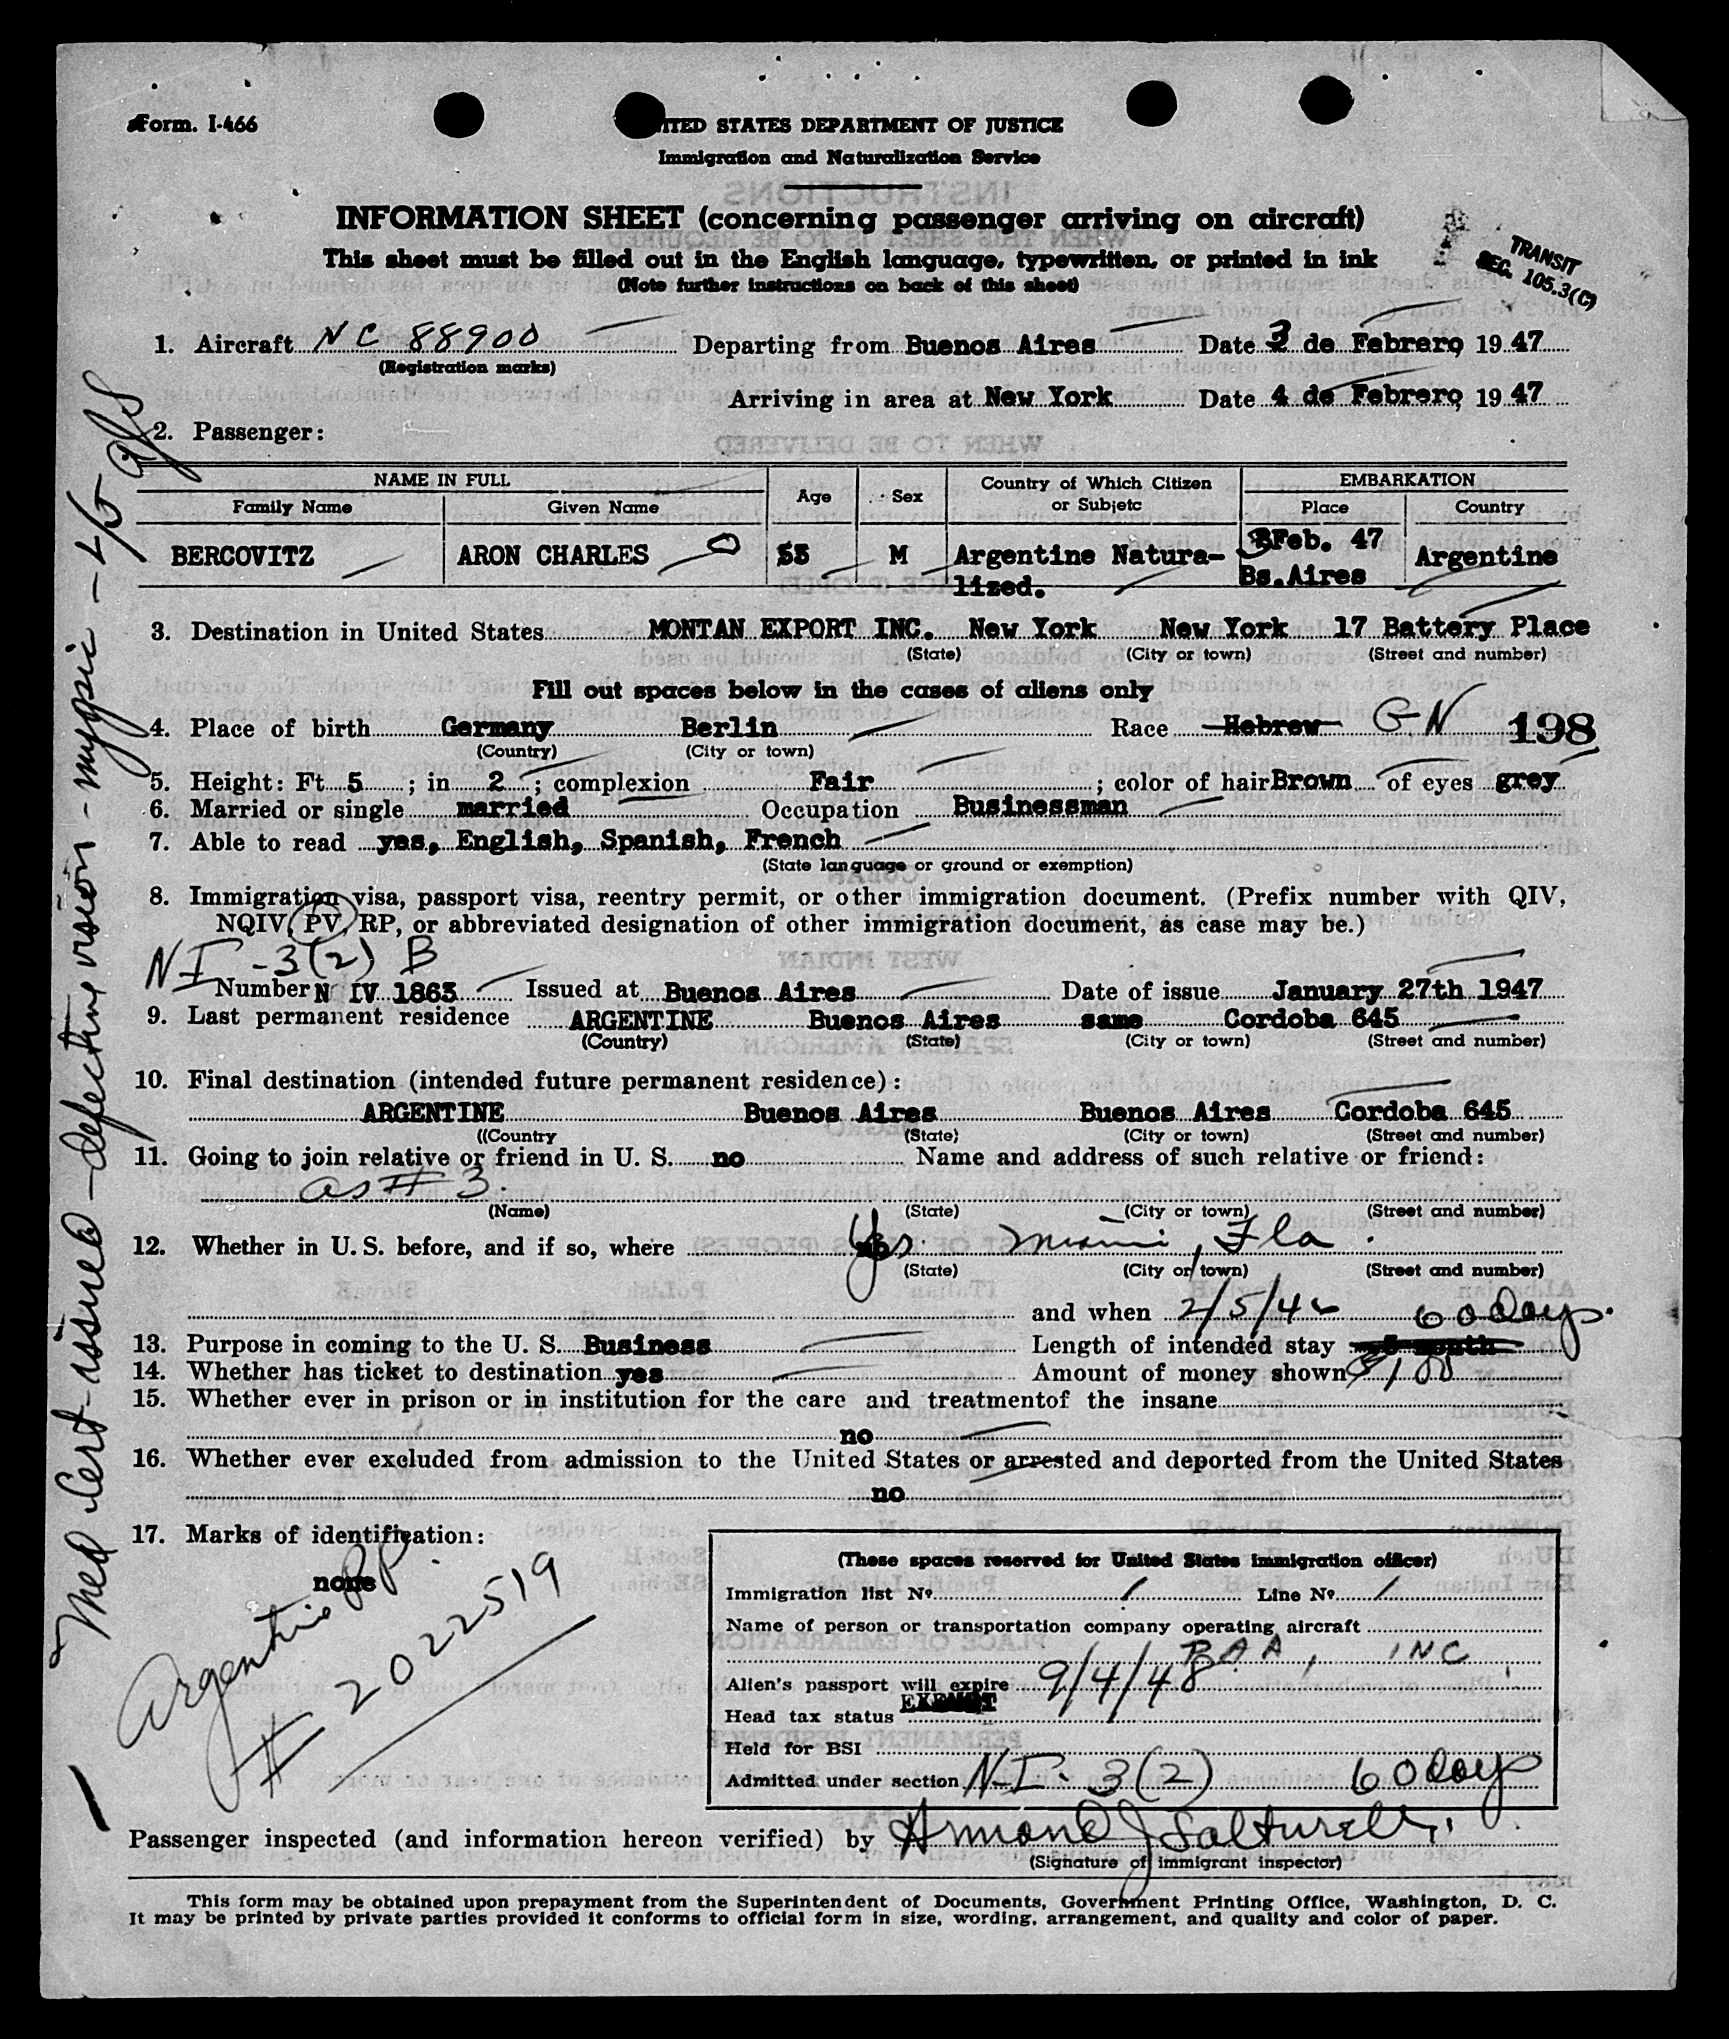 Form. I-466
UNITED STATES DEPARTMENT OF JUSTICE
Immigration and Naturalization Service
INFORMATION SHEET (concerning passenger arriving on aircraft)
This sheet must be filled out in the English language, typewritten, or printed in ink
(Note further instructions on back of this sheet)
TRANSIT
SEC. 105.3(C)
1. Aircraft NC 88900 Departing from Buenos Aires Date 3 de Febrero, 19 47
(Registration marks)
Arriving in area at New York Date 4 de Febrero, 19 47
2. Passenger:
NAME IN FULL Age Sex Country of Which Citizen or Subjetc EMBARKATION
Family Name Given Name Place Country
BERCOVITZ ARON CHARLES M Argentine Natura- 3Feb. 47 Argentine
lized. Bs.Aires
3. Destination in United States MONTAN EXPORT INC. New York New York 17 Battery Place
(State) (City or town) (Street and number)
Fill out spaces below in the cases of aliens only
4. Place of birth Germany Berlin Race Hebrew GN 198
(Country) (City or town)
5. Height: Ft 5 ; in 2 ; complexion Fair ; color of hair Brown of eyes grey
6. Married or single married Occupation Businessman
7. Able to read yes, English, Spanish, French
(State language or ground or exemption)
8. Immigration visa, passport visa, reentry permit, or other immigration document. (Prefix number with QIV,
NQIV, PV, RP, or abbreviated designation of other immigration document, as case may be.)
NI -3(2) B
Number N IV 1863 Issued at Buenos Aires Date of issue January 27th 1947
9. Last permanent residence ARGENTINE Buenos Aires same Cordoba 645
(Country) (State) (City or town) (Street and number)
10. Final destination (intended future permanent residence):
ARGENTINE Buenos Aires Buenos Aires Cordoba 645
((Country (State) (City or town) (Street and number)
11. Going to join relative or friend in U. S. no Name and address of such relative or friend:
as # 3.
(Name) (State) (City or town) (Street and number)
12. Whether in U. S. before, and if so, where Yes Miami, Fla.
(State) (City or town) (Street and number)
and when 2/5/46 60 days.
13. Purpose in coming to the U. S. Business Length of intended stay month
14. Whether has ticket to destination yes Amount of money shown $100
15. Whether ever in prison or in institution for the care and treatmentof the insane
no
16. Whether ever excluded from admission to the United States or arrested and deported from the United States
no
17. Marks of identification:
none
Argentine PP.
# 2022519
(These spaces reserved for United States immigration officer)
Immigration list Nº 1 Line Nº 1
Name of person or transportation company operating aircraft
PAA, INC
Alien's passport will expire 9/4/48
Head tax status EXEMPT
Held for BSI
Admitted under section N-I- 3(2) 60 days
Passenger inspected (and information hereon verified) by Armand J
(Signature of immigrant inspector)
This form may be obtained upon prepayment from the Superintendent of Documents, Government Printing Office, Washington, D. C.
It may be printed by private parties provided it conforms to official form in size, wording, arrangement, and quality and color of paper.
Med Cert - issued - defective vision - myopic -